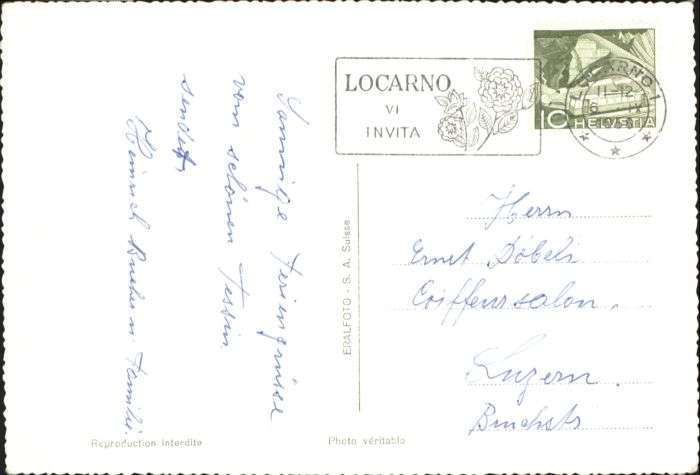 LOCARNO
VI
INVITA
LOCARNO 1
11-12
10 HELVETIA
Sonnige Feriengrüsse
vom schönen Tessin
sendet
Heinrich u. Familie.
ERALFOTO - S. A. Suisse
Herrn
Ernst Döbeli
Coiffeursalon.
Luzern.
Reproduction interdite
Photo véritable